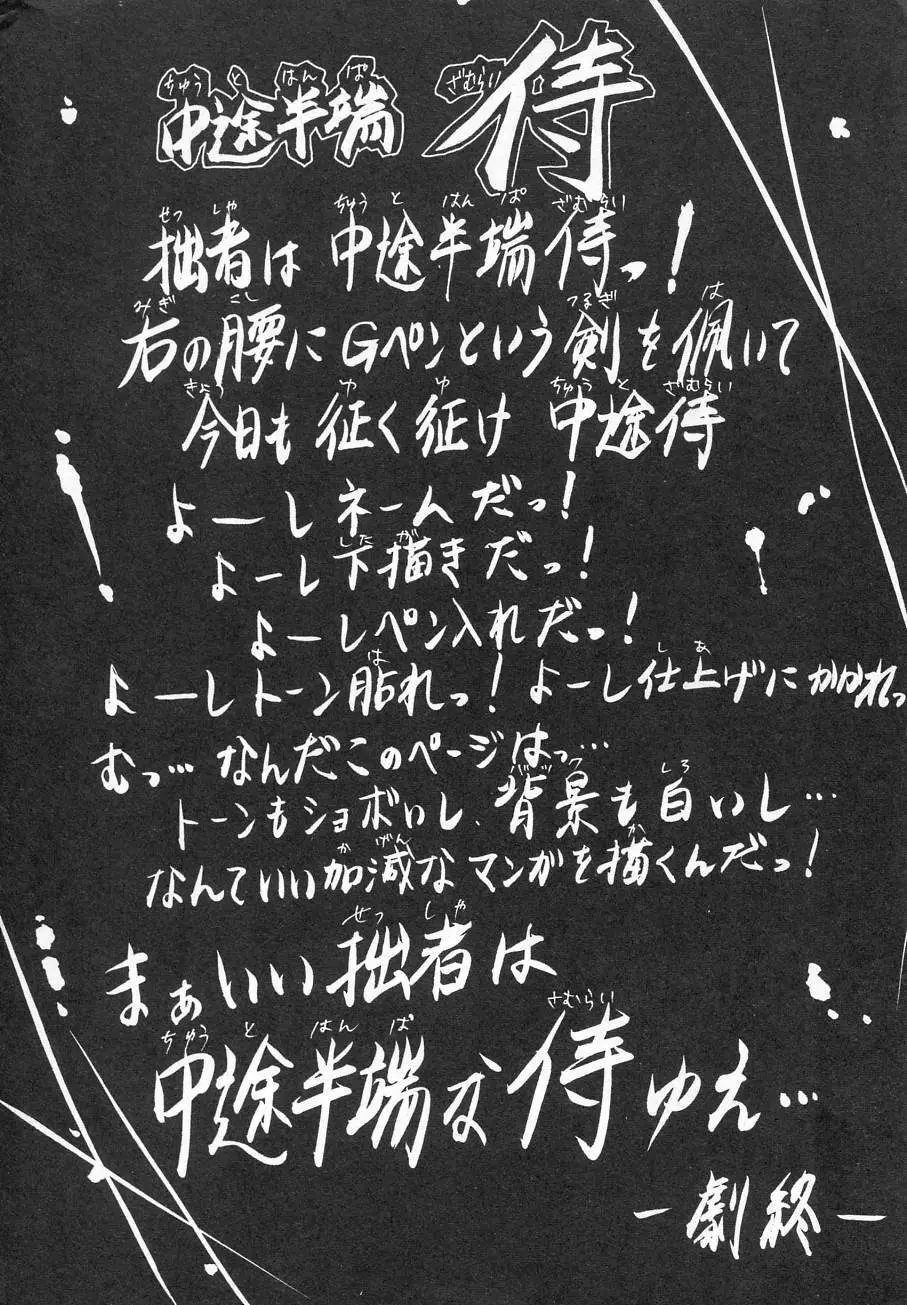 中途半端 侍
拙者は 中途半端侍っ!
右の腰にGペンという剣を佩いて
今日も 征く征け 中途侍
よーしネームだっ!
よーし下描きだっ!
よーしペン入れだっ!
よーしトーン貼れっ! よーし仕上げにかかれっ
むっ… なんだこのページはっ…
トーンもショボいし、背景も白いし…
なんていい加減なマンガを描くんだっ!
まぁいい拙者は
中途半端な侍ゆえ…
ー劇終ー